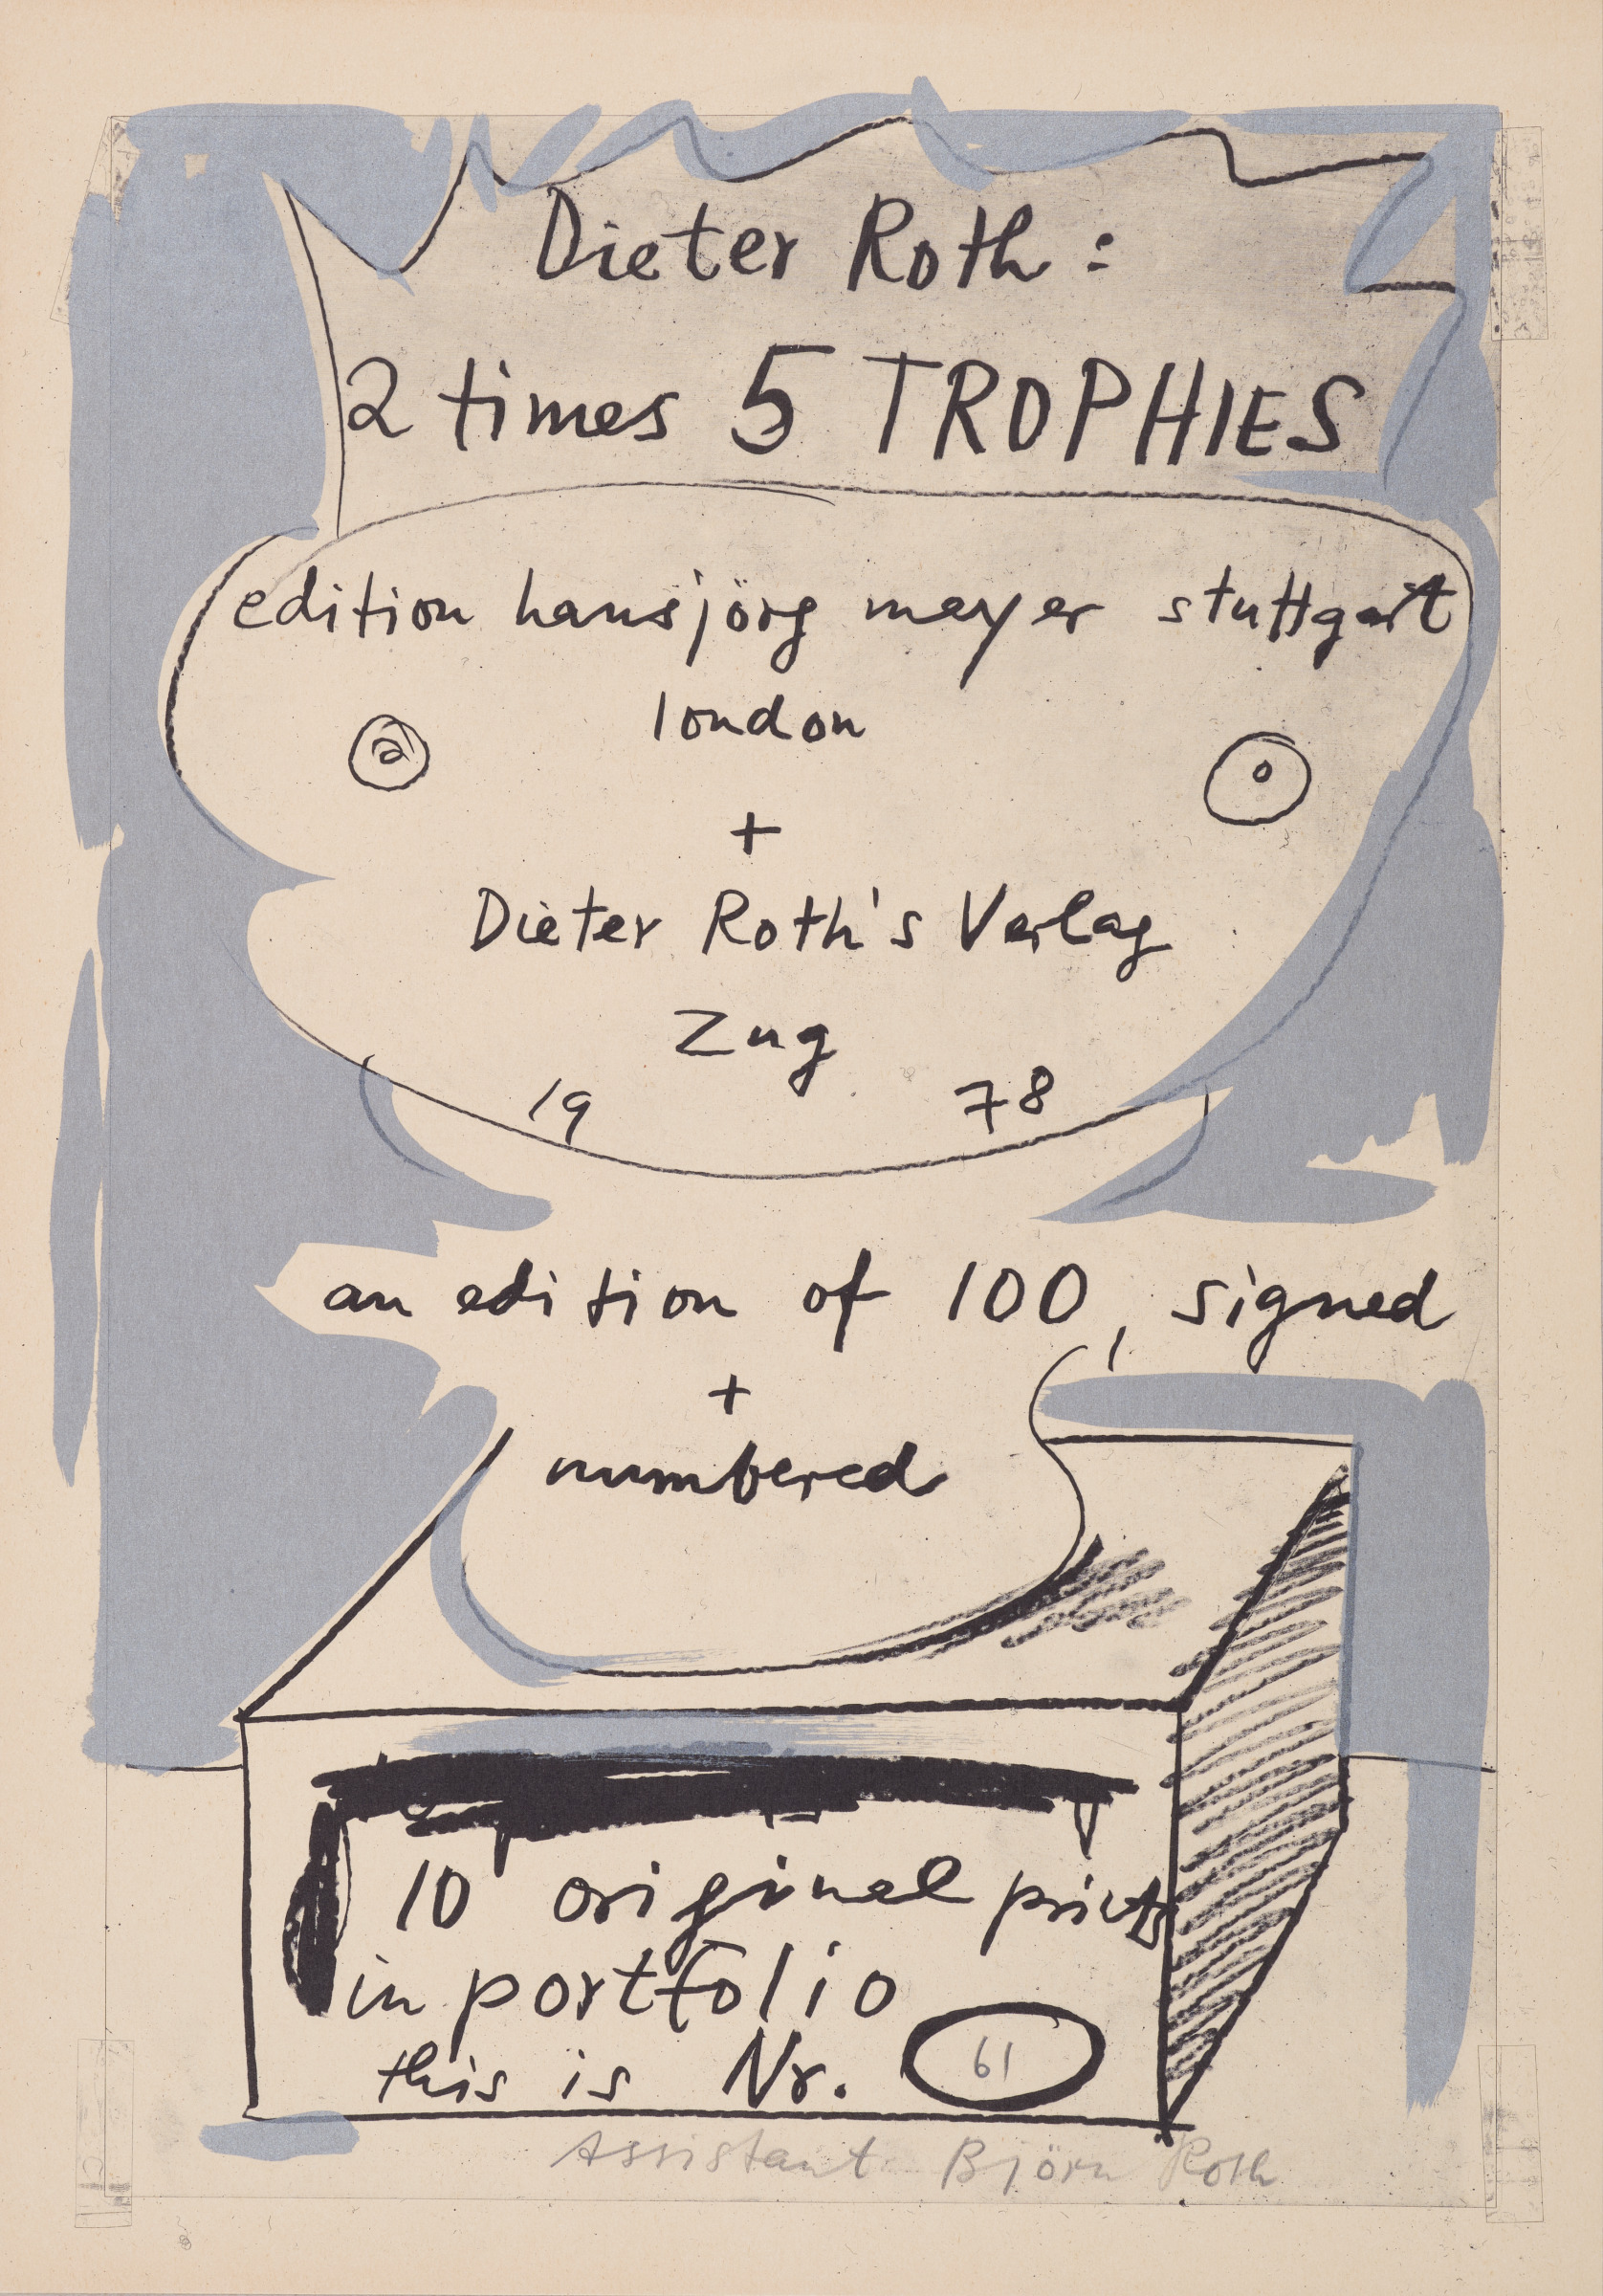 Dieter Roth:
2 times 5 TROPHIES
edition hansjörg mayer stuttgart
london
+
Dieter Roth's Verlag
Zug
19 78
an edition of 100, signed
+
numbered
10 original prints
in portfolio
this is Nr. 61
Assistant Björn Roth